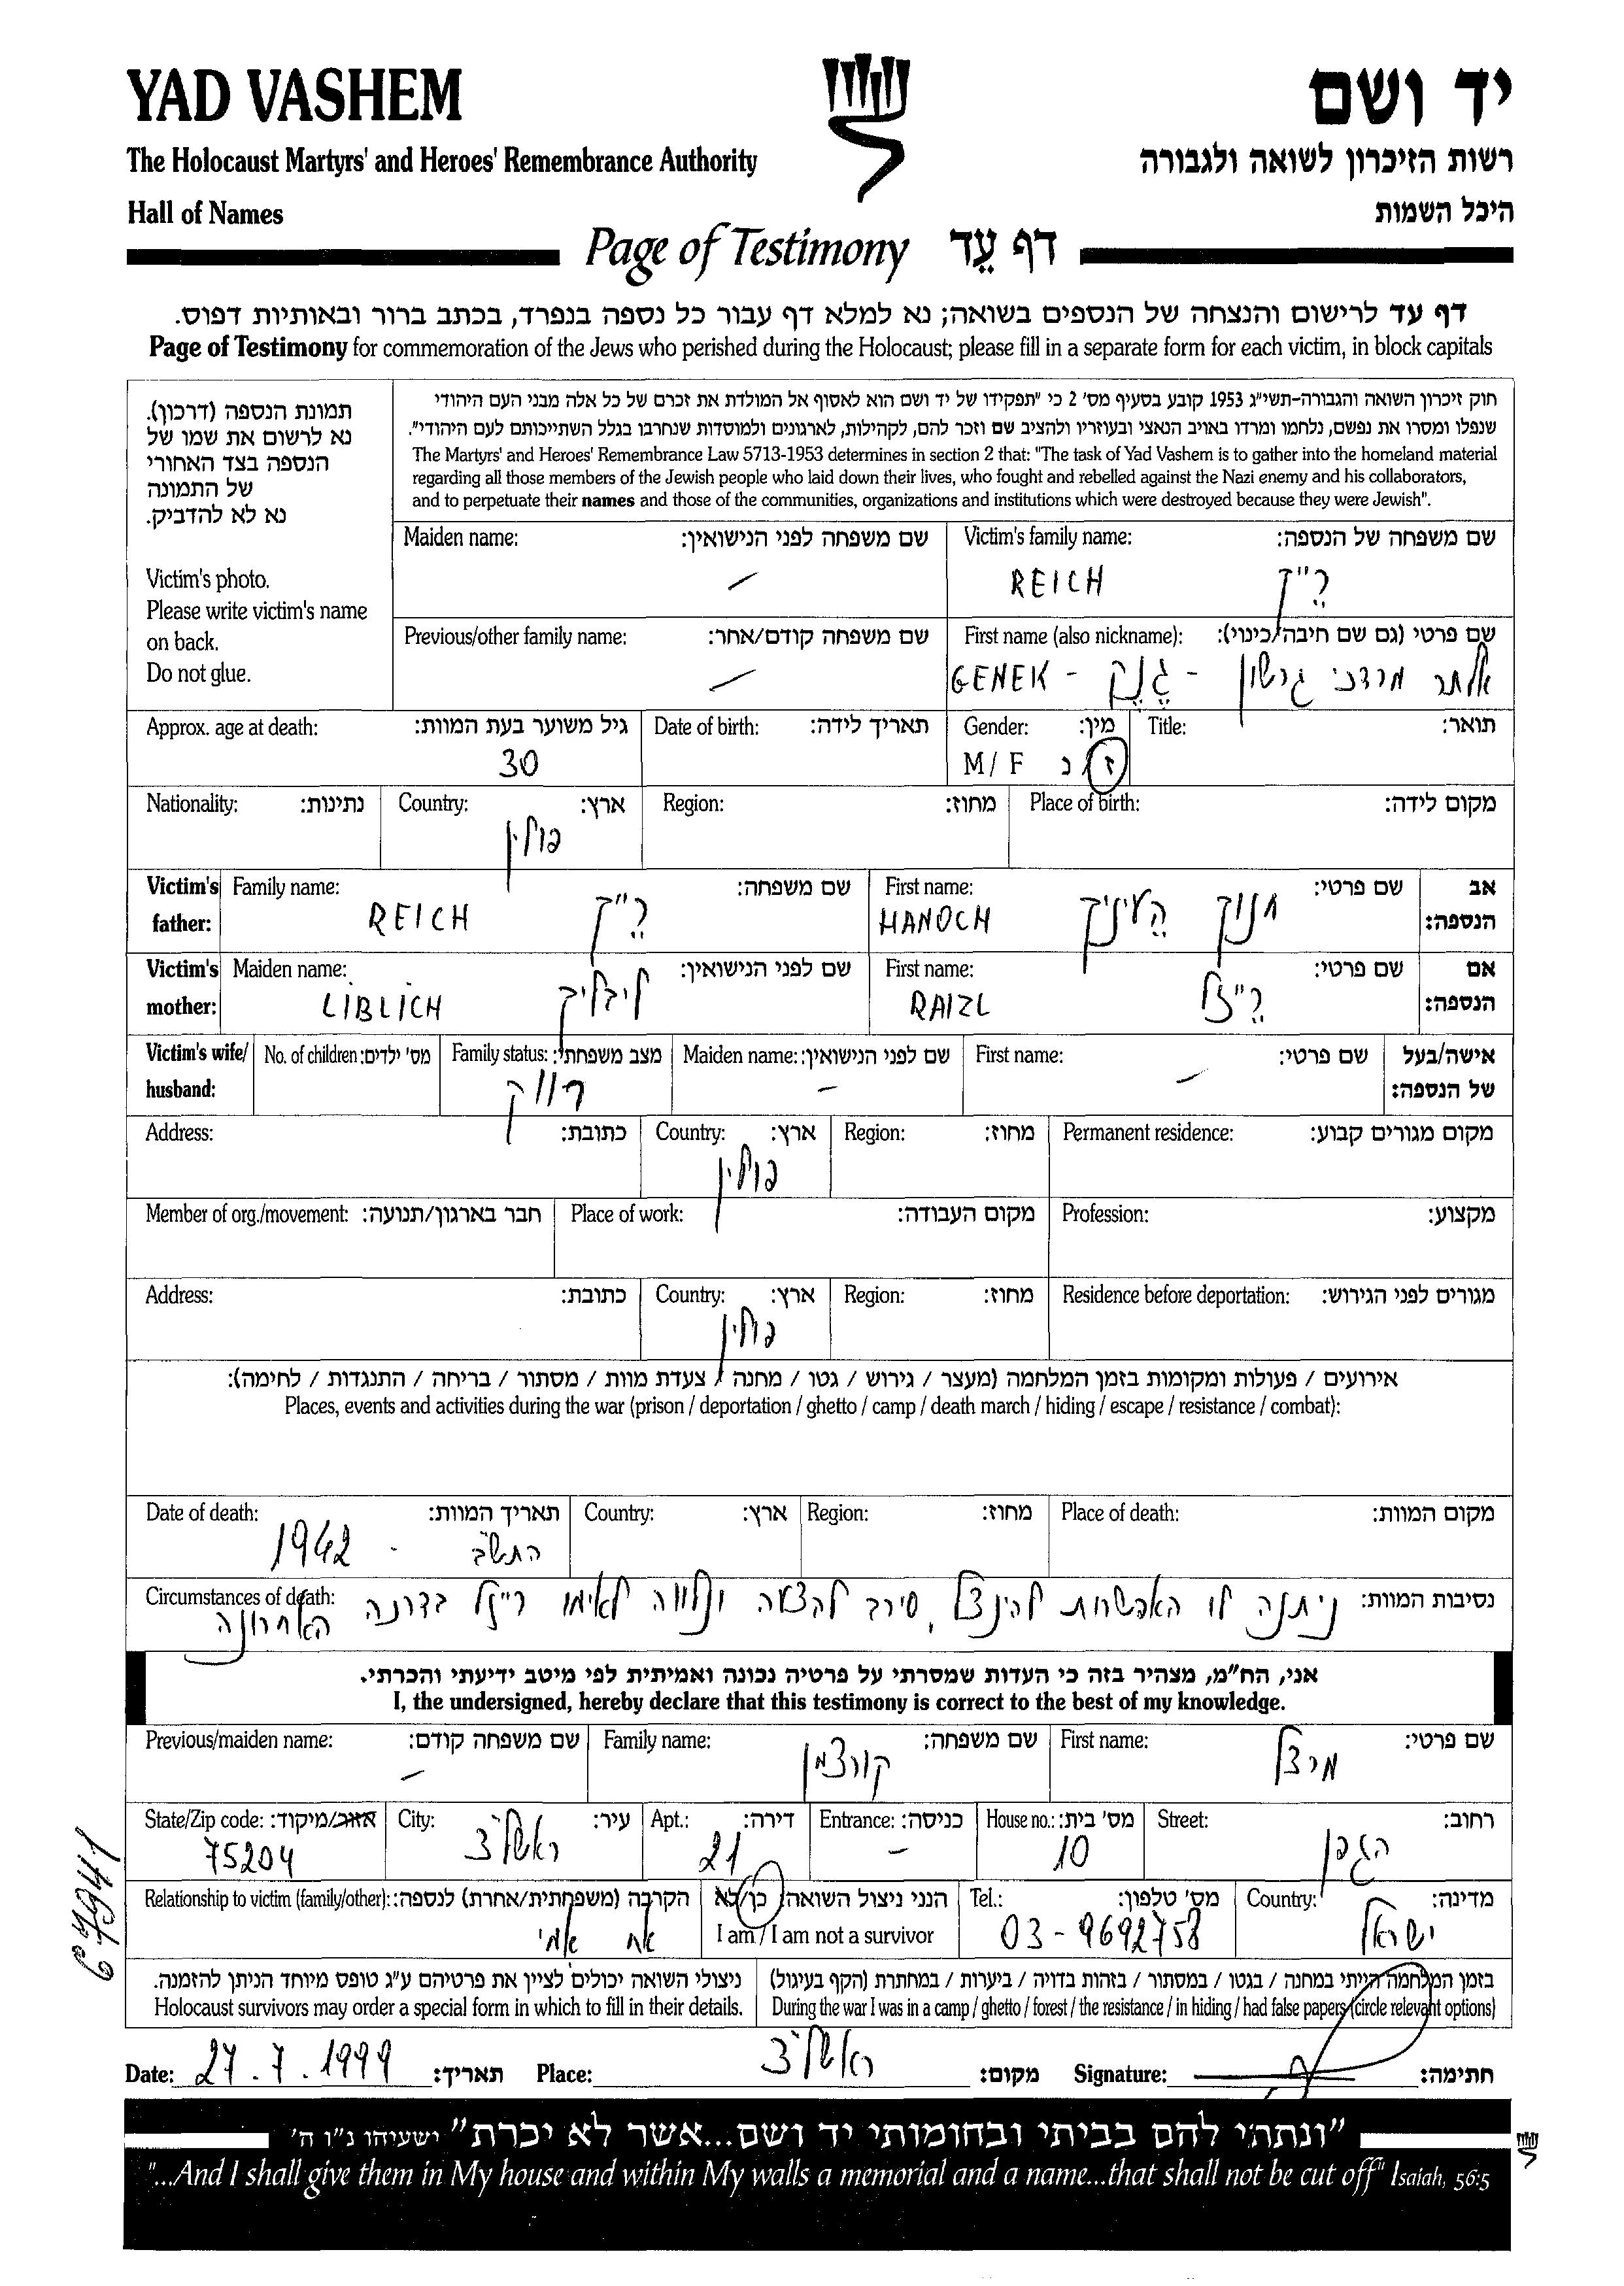 YAD VASHEM
יד ושם
The Holocaust Martyrs' and Heroes' Remembrance Authority
רשות הזיכרון לשואה ולגבורה
Hall of Names
היכל השמות
Page of Testimony דף עֵד
דף עד לרישום והנצחה של הנספים בשואה; נא למלא דף עבור כל נספה בנפרד, בכתב ברור ובאותיות דפוס.
Page of Testimony for commemoration of the Jews who perished during the Holocaust; please fill in a separate form for each victim, in block capitals
תמונת הנספה (דרכון).
נא לרשום את שמו של
הנספה בצד האחורי
של התמונה
נא לא להדביק.
Victim's photo.
Please write victim's name
on back.
Do not glue.
חוק זיכרון השואה והגבורה-תשי"ג 1953 קובע בסעיף מס' 2 כי "תפקידו של יד ושם הוא לאסוף אל המולדת את זכרם של כל אלה מבני העם היהודי
שנפלו ומסרו את נפשם, נלחמו ומרדו באויב הנאצי ובעוזריו ולהציב שם וזכר להם, לקהילות, לארגונים ולמוסדות שנחרבו בגלל השתייכותם לעם היהודי".
The Martyrs' and Heroes' Remembrance Law 5713-1953 determines in section 2 that: "The task of Yad Vashem is to gather into the homeland material
regarding all those members of the Jewish people who laid down their lives, who fought and rebelled against the Nazi enemy and his collaborators,
and to perpetuate their names and those of the communities, organizations and institutions which were destroyed because they were Jewish".
Maiden name: שם משפחה לפני הנישואין:
–
Victim's family name: שם משפחה של הנספה:
REICH רֵ"ך
Previous/other family name: שם משפחה קודם/אחר:
–
First name (also nickname): שם פרטי (גם שם חיבה/כינוי):
אלתר מרדכי גרשון - גֶנֶק - GENEK
Approx. age at death: גיל משוער בעת המוות:
30
Date of birth: תאריך לידה:
Gender: מין:
M / F ז / נ
Title: תואר:
Nationality: נתינות:
Country: ארץ:
פולין
Region: מחוז:
Place of birth: מקום לידה:
Victim's father: Family name: שם משפחה:
REICH רֵ"ך
First name: שם פרטי: אב הנספה:
HANOCH חנוך העיניך
Victim's mother: Maiden name: שם לפני הנישואין:
LIBLICH ליבליך
First name: שם פרטי: אם הנספה:
RAIZL רֵ"זל
Victim's wife/ husband: No. of children: מס' ילדים:
Family status: מצב משפחתי:
רווק
Maiden name: שם לפני הנישואין:
–
First name: שם פרטי: אישה/בעל של הנספה:
–
Address: כתובת:
Country: ארץ:
פולין
Region: מחוז:
Permanent residence: מקום מגורים קבוע:
Member of org./movement: חבר בארגון/תנועה:
Place of work: מקום העבודה:
Profession: מקצוע:
Address: כתובת:
Country: ארץ:
פולין
Region: מחוז:
Residence before deportation: מגורים לפני הגירוש:
אירועים / פעולות ומקומות בזמן המלחמה (מעצר / גירוש / גטו / מחנה / צעדת מוות / מסתור / בריחה / התנגדות / לחימה):
Places, events and activities during the war (prison / deportation / ghetto / camp / death march / hiding / escape / resistance / combat):
Date of death: תאריך המוות:
1942 - התש"ב
Country: ארץ:
Region: מחוז:
Place of death: מקום המוות:
Circumstances of death: נסיבות המוות:
ניתנה לו האפשרות להינצל, סירב להצעה ונלווה לאימו ריזל בדרכה
האחרונה
אני, הח"מ, מצהיר בזה כי העדות שמסרתי על פרטיה נכונה ואמיתית לפי מיטב ידיעתי והכרתי.
I, the undersigned, hereby declare that this testimony is correct to the best of my knowledge.
Previous/maiden name: שם משפחה קודם:
–
Family name: שם משפחה:
קורצמן
First name: שם פרטי:
מיצל
State/Zip code: אזור/מיקוד:
75204
City: עיר:
ראשל"צ
Apt.: דירה:
21
Entrance: כניסה:
–
House no.: מס' בית:
10
Street: רחוב:
הגפן
Relationship to victim (family/other): הקרבה (משפחתית/אחרת) לנספה:
אח אמי
הנני ניצול השואה: כן/לא
I am / I am not a survivor
Tel.: מס' טלפון:
03-9692758
Country: מדינה:
ישראל
ניצולי השואה יכולים לציין את פרטיהם ע"ג טופס מיוחד הניתן להזמנה.
Holocaust survivors may order a special form in which to fill in their details.
בזמן המלחמה הייתי במחנה / בגטו / במסתור / בזהות בדויה / ביערות / במחתרת (הקף בעיגול)
During the war I was in a camp / ghetto / forest / the resistance / in hiding / had false papers (circle relevant options)
Date: 27.7.1999 תאריך: Place: ראשל"צ מקום: Signature: חתימה:
"ונתתי להם בביתי ובחומותי יד ושם...אשר לא יכרת" ישעיהו נ"ו ה'
"...And I shall give them in My house and within My walls a memorial and a name...that shall not be cut off" Isaiah, 56:5